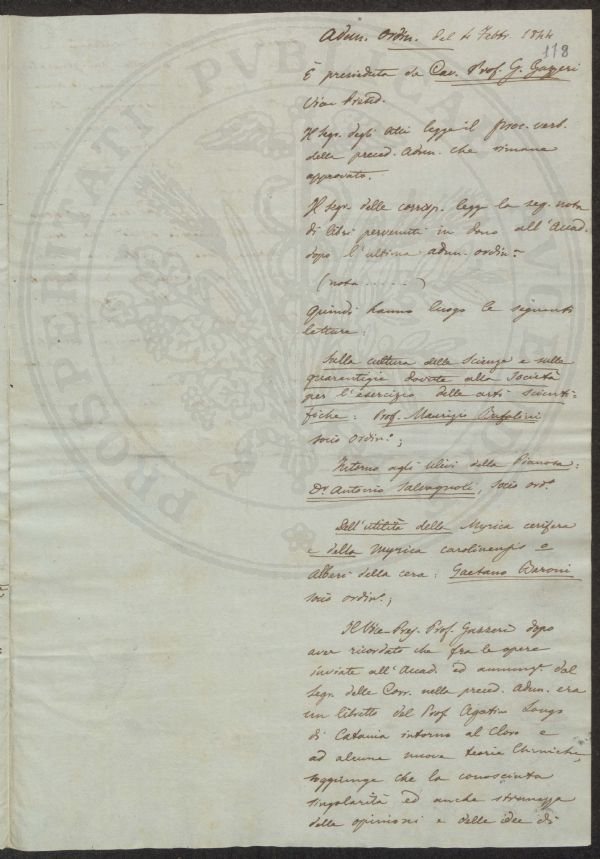 Adun. Ordin. del 4 Febbr. 1844
118
È presieduta da Cav. Prof. G. Gazzeri
Vice Presid.
Il Segr. degli Atti legge il proc. verb.
della preced. Adun. che rimane
approvato.
Il Segr. delle corrisp. legge la seg. nota
di libri pervenuti in dono all'Accad.
dopo l'ultima adun. ordin.ª
(nota ......)
Quindi hanno luogo le seguenti
letture:
Sulla cultura delle Scienze e sulle
guarentigie dovute alla Società
per l'esercizio delle arti scienti-
fiche: Prof. Maurizio Bufalini
socio ordin.º;
Intorno agli Ulivi della Pianosa:
Dr. Antonio Salvagnoli, Socio ord.º
Dell'utilità della Myrica cerifera
e della Myrica carolinensis o
Alberi della cera: Gaetano Baroni
socio ordin.º;
Il Vice-Pres. Prof. Gazzeri dopo
aver ricordato che fra le opere
inviate all'Accad. ed annunz.e dal
Segr. delle Corr. nella preced. Adun. era
un libretto del Prof. Agatino Longo
di Catania intorno al Cloro e
ad alcune nuove teorie Chimiche,
soggiunge che la conosciuta
singolarità ed anche stranezza
delle opinioni e delle idee di
PROSPERITATI PVBLICAE AVGENDAE